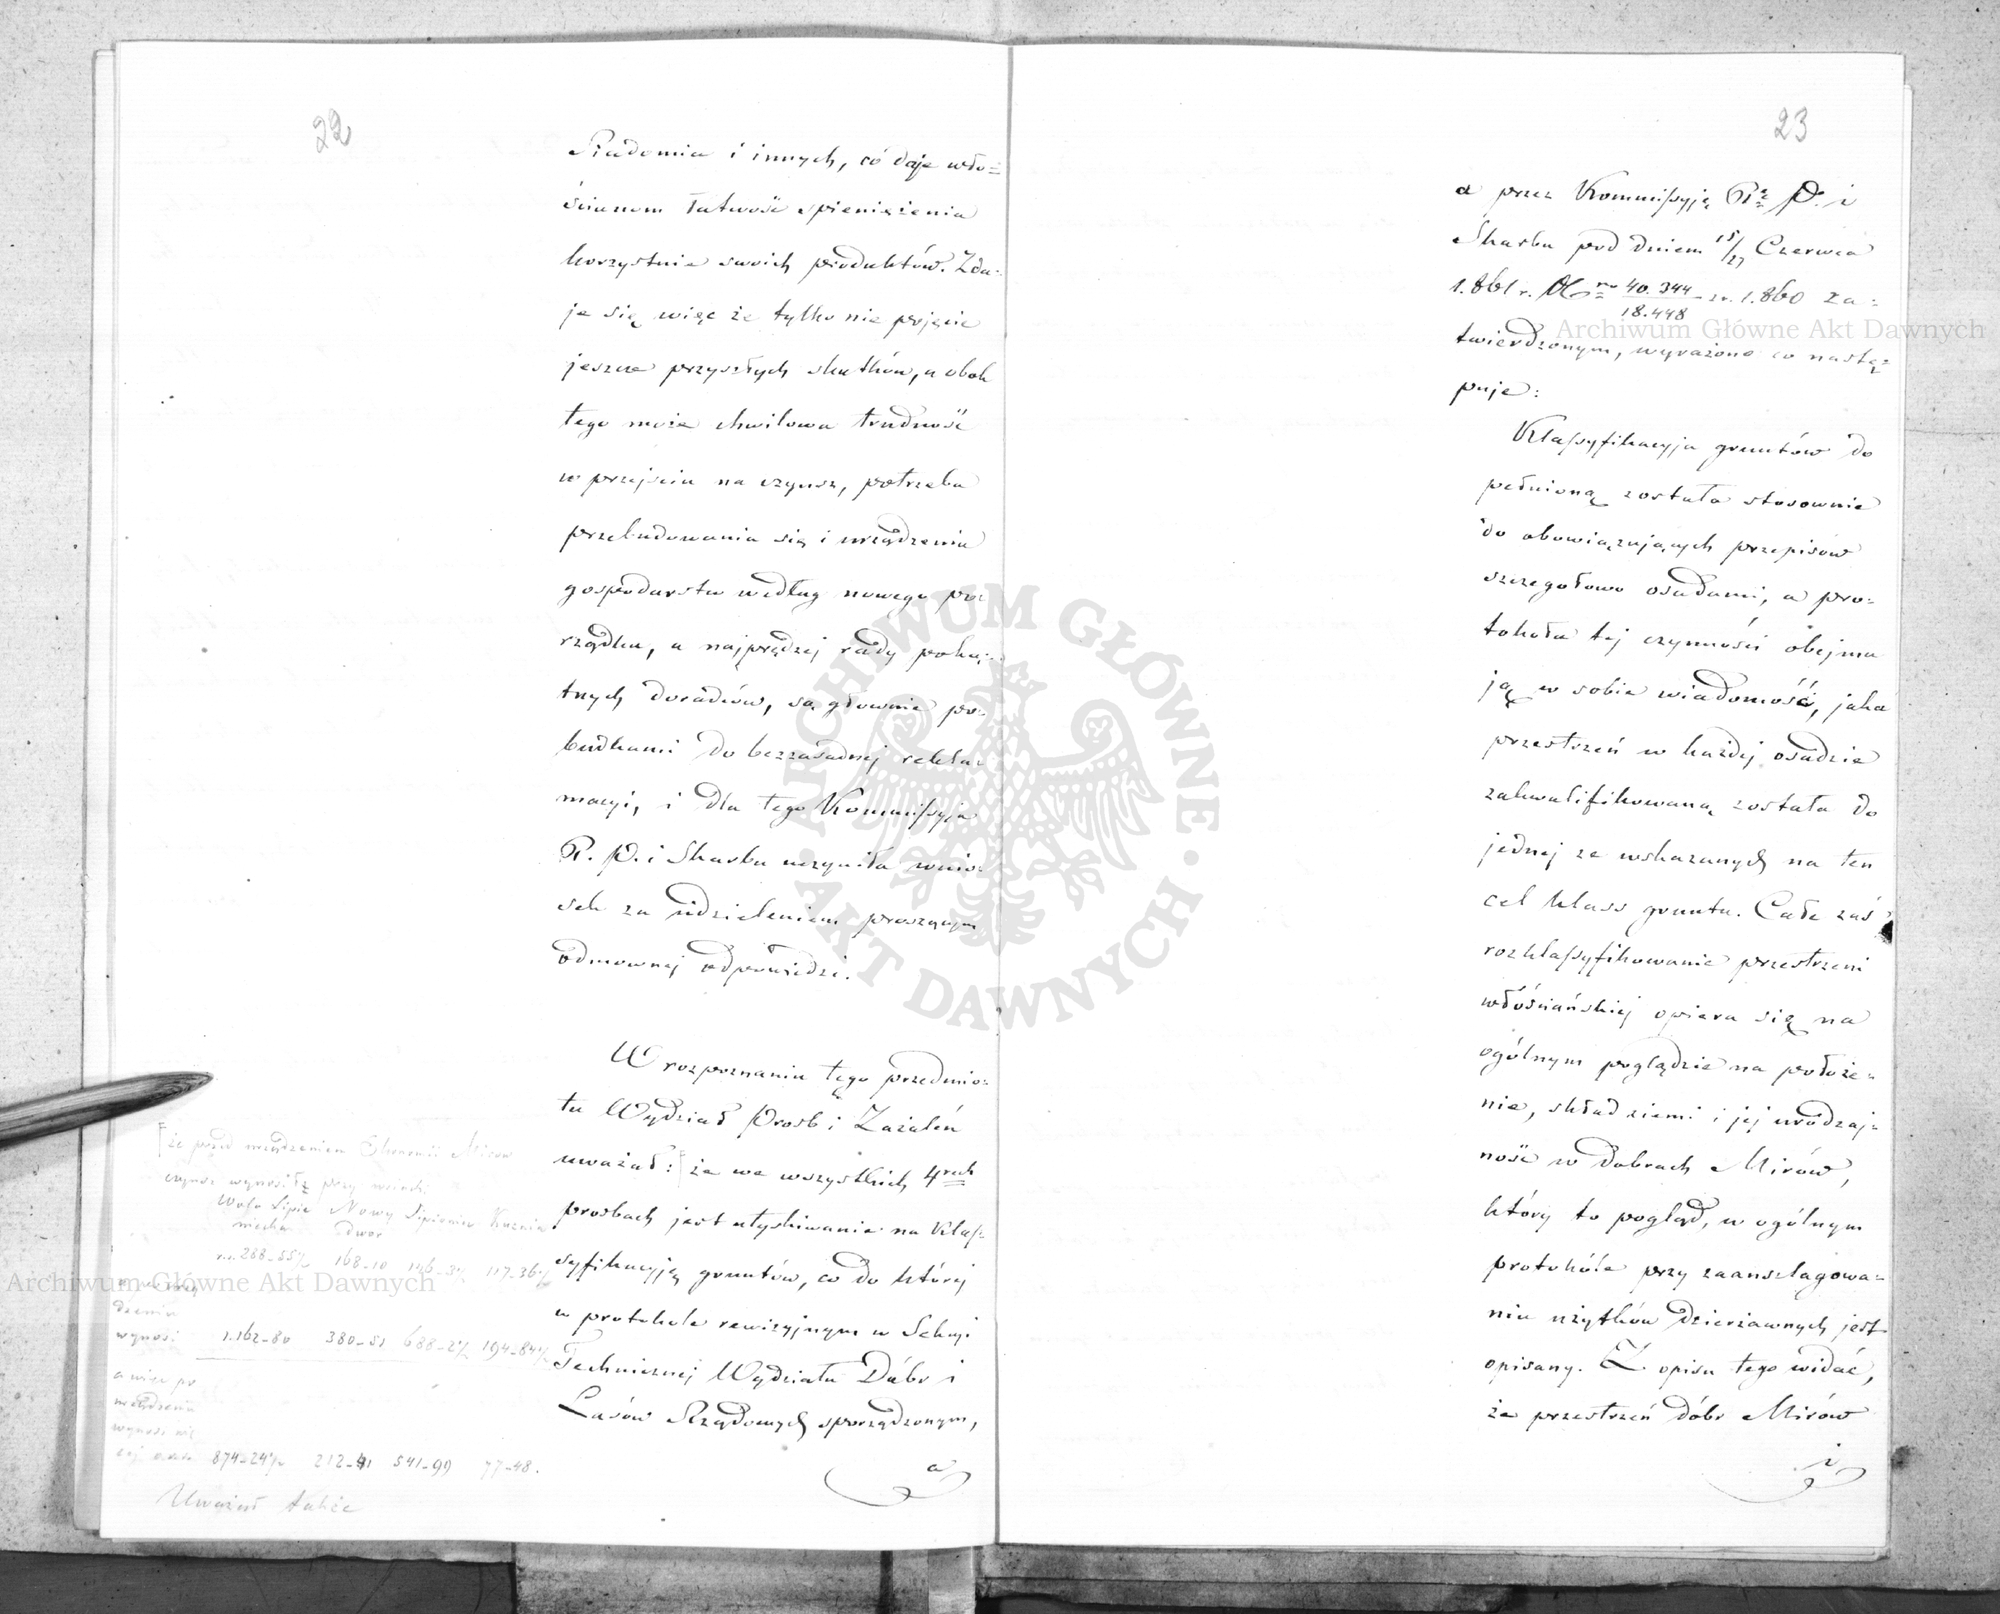 22
Radomia i innych, có daje wło=
ścianom łatwość spieniężenia
korzystnie swoich produktów. Zda-
je się więc że tylko nie pojęcie
jeszcze przyszłych skutków, a obok
tego może chwilowa trudność
w przejściu na czynsz, potrzeba
przebudowania się i urządzenia
gospodarstw według nowego po-
rządku, a najprędzej rady poką-
tnych doradców, są głownie po-
budkami do bezzasadnej rekla-
macyi, i dla tego Kommissyja
R. P. i Skarbu uczyniła wnio-
sek za udzieleniem proszącym
odmownej odpowiedzi.
W rozpoznaniu tego przedmio-
tu Wydział Prosb i Zażaleń
uważał: że we wszystkich 4rech
prosbach jest utyskiwanie na klas-
syfikacyją gruntów, co do której
w protokole rewizyjnym w Sekcyi
Technicznej Wydziału Dóbr i
Lasów Rządowych sporządzonym,
a
że przed urządzeniem Ekonomii Mirów
czynsz wynosił przy wsiach:
Wola Lipie Nowy Lipienice Kuźnia
niecka dwor
r.s. 288-55½ 168-10 146-3½ 117-36½
dzeniu
wynosi 1.162-80 380-51 688-2½ 194-84½
a więc po
urządzeniu
wynosi wię
cej 874-24½ 212-41 541-99 77-48.
Uważał także
23
a przez Kommissyją R. P. i
Skarbu pod dniem 15/27 Czerwca
1.861 r. No 40.344/18.448 z r. 1.860 za=
twierdzonym, wyrażono co nastę=
puje:
Klassyfikacyja gruntów do
pełnioną została stosownie
do obowiązujących przepisów
szczegołowo osadami, a pro-
tokoła tej czynności obejmu
ją w sobie wiadomość, jaka
przestrzeń w każdej osadzie
zakwalifikowaną została do
jednej ze wskazanych na ten
cel klass gruntu. Całe zaś
rozklassyfikowanie przestrzeni
włościańskiej opiera się na
ogólnym poglądzie na położe-
nie, skład ziemi i jej urodzaj-
ność w dobrach Mirów,
który to pogląd, w ogólnym
protokóle przy zaanszlagowa-
niu użytków dzierżawnych jest
opisany. Z opisu tego widać,
że przestrzeń dóbr Mirów
i
Archiwum Główne Akt Dawnych
Archiwum Główne Akt Dawnych
ARCHIWUM GŁÓWNE • AKT DAWNYCH •